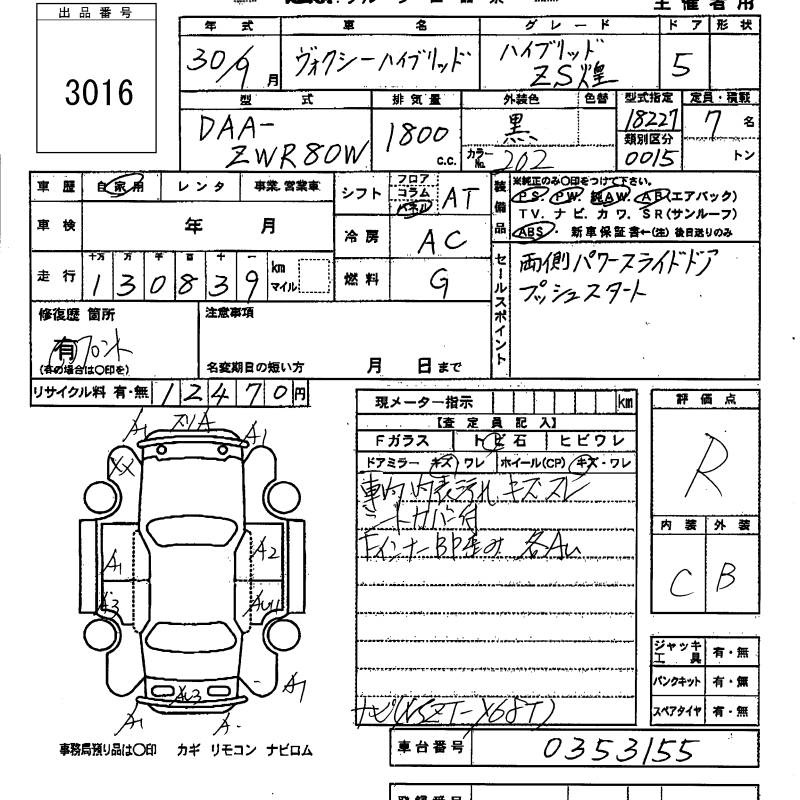 主催者用
出品番号
3016
年式 車名 グレード ドア 形状
30/9月 ヴォクシーハイブリッド ハイブリッド ZS煌 5
型式 排気量 外装色 色替 型式指定 定員・積載
DAA-ZWR80W 1800 c.c. 黒 カラーNo. 202 18227 7名
類別区分 0015 トン
車歴 自家用 レンタ 事業.営業車 シフト フロア コラム パネル AT
装備品 ※純正のみ〇印をつけて下さい。
PS. PW. 純AW. AB(エアバック)
TV. ナビ. カワ. SR(サンルーフ)
ABS・ 新車保証書←(注)後日送りのみ
車検 年 月 冷房 AC
走行 十万 万 千 百 十 一
130839 km マイル 燃料 G
セールスポイント 両側パワースライドドア
プッシュスタート
修復歴 箇所 注意事項
有 フロント
(有の場合は〇印を) 名変期日の短い方 月 日まで
リサイクル料 有・無 12470円
現メーター指示 km
【査定員記入】
Fガラス トビ石 ヒビワレ
ドアミラー キズ・ワレ ホイール(CP) キズ・ワレ
車内 内表汚れ キズ スレ
シートカバー付
FインナーBP歪み 各AU
ナビ(NSZT-Y68T)
評価点
R
内装 外装
C B
A1 スリA A1
XX
A1 A2
A3 AU1
AU3 A1
A1 A-
ジャッキ工具 有・無
パンクキット 有・無
スペアタイヤ 有・無
事務局預り品は〇印 カギ リモコン ナビロム
車台番号 0353155
登録番号